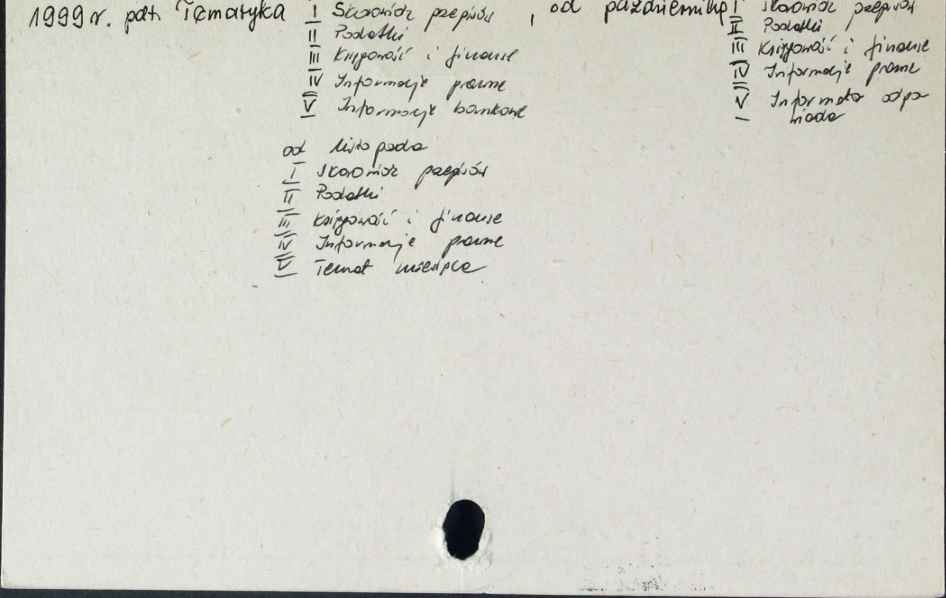 1999 r. pdt. Tematyka I Skorowidz przepisów , od października I Skorowidz przepisów
II Podatki
III Księgowość i finanse
IV Informacje prawne
V Informacje bankowe
II Podatki
III Księgowość i finanse
IV Informacje prawne
V Informator odpo
wiada
od listopada
I Skorowidz przepisów
II Podatki
III Księgowość i finanse
IV Informacje prawne
V Temat miesiąca